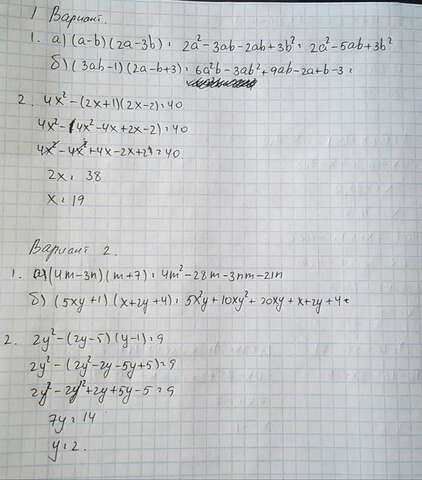 1 Вариант.
1. а) (a-b)(2a-3b) = 2a²-3ab-2ab+3b² = 2a²-5ab+3b²
б) (3ab-1)(2a-b+3) = 6a²b-3ab²+9ab-2a+b-3 =
2. 4x²-(2x+1)(2x-2)=40
4x²-(4x²-4x+2x-2)=40
4x²-4x²+4x-2x+2=40
2x = 38
x = 19
Вариант 2.
1. а) (4m-3n)(m+7) = 4m²-28m-3nm-21n
б) (5xy+1)(x+2y+4) = 5x²y+10xy²+20xy+x+2y+4
2. 2y²-(2y-5)(y-1)=9
2y²-(2y²-2y-5y+5)=9
2y²-2y²+2y+5y-5=9
7y = 14
y = 2.